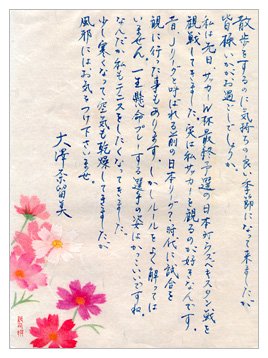 散歩をするのに気持ちの良い季節になって来ましたが
皆様いかがお過ごしでしょうか。
私は先日サッカーW杯最終予選の日本対ウズベキスタン戦を
観戦してきました。実は私サッカーを観るのが好きなんです。
昔、Jリーグと呼ばれる前の日本リーグの時代に試合を
観に行った事もあります。しかしルールをよく解っては
いません。一生懸命プレーする選手の姿はかっこいいですね。
なんだか私もテニスをしたくなってきました。
少し寒くなって空気も乾燥してきましたが
風邪にはお気をつけ下さいませ。
大澤奈留美